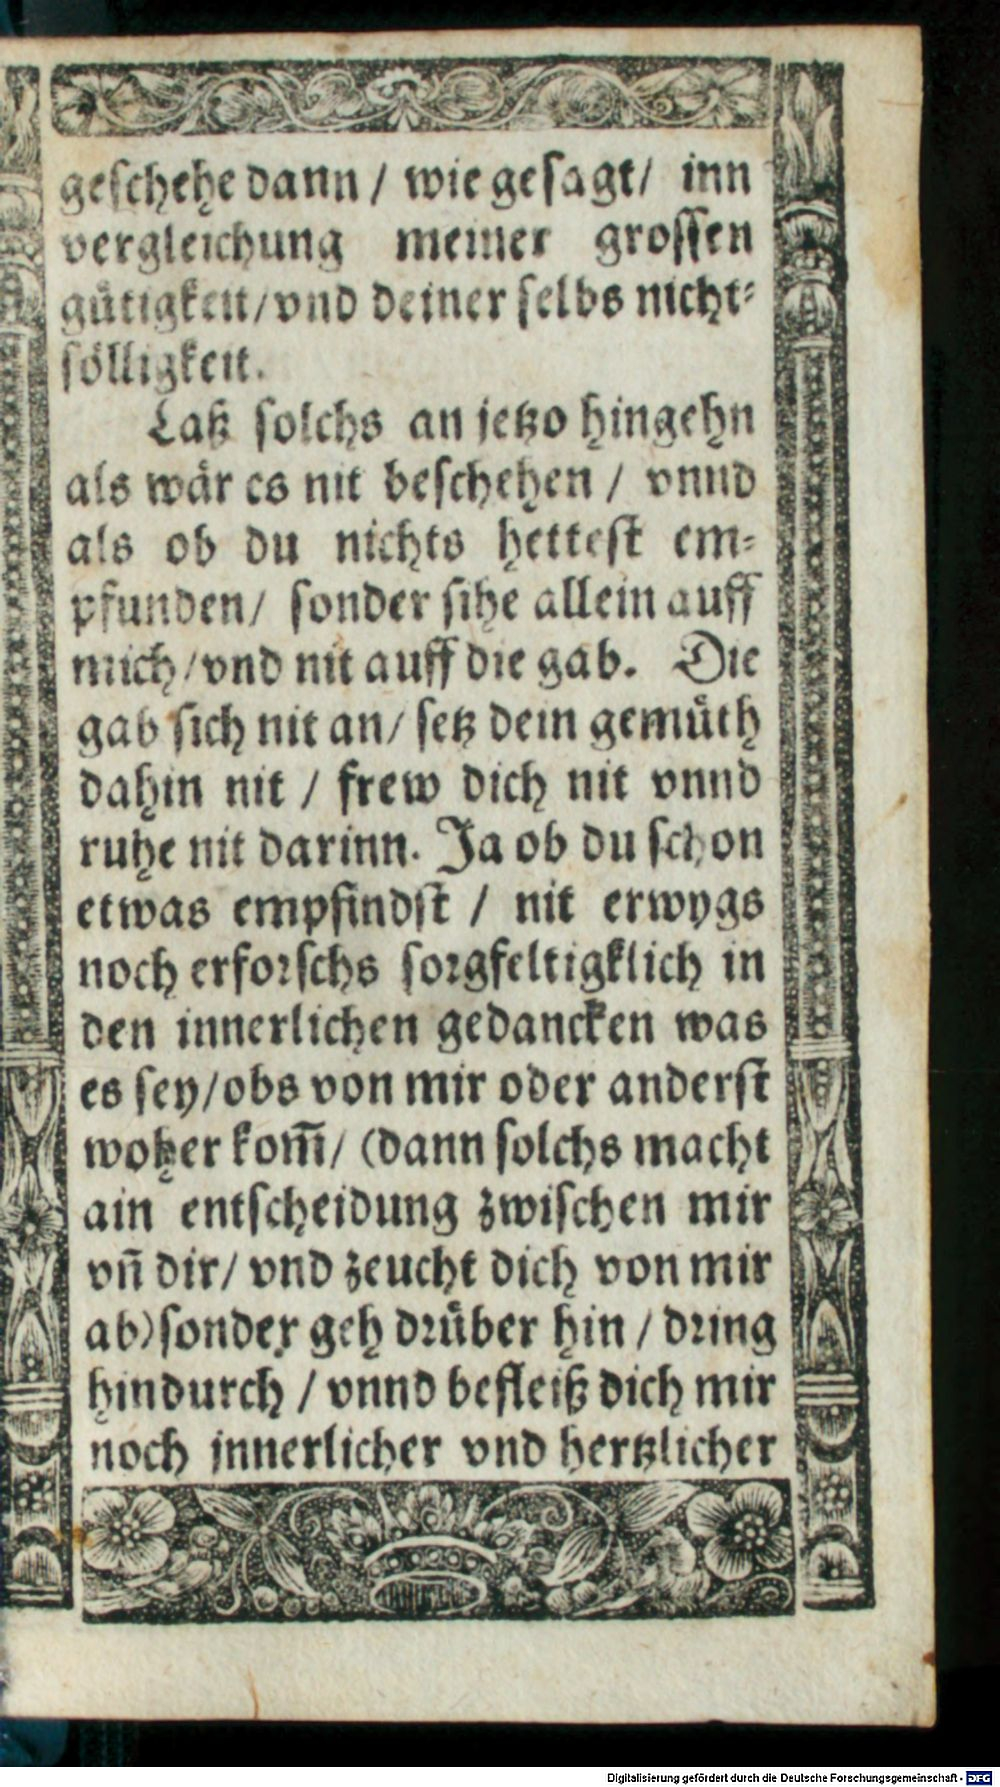 geschehe dann / wie gesagt / inn
vergleichung meiner grossen
gütigkeit / vnd deiner selbs nicht-
sölligkeit.
Laß solchs an jetzo hingehn
als wär es nit beschehen / vnnd
als ob du nichts hettest em-
pfunden / sonder sihe allein auff
mich / vnd nit auff die gab. Die
gab sich nit an / setz dein gemüth
dahin nit / frew dich nit vnnd
ruhe nit darinn. Ja ob du schon
etwas empfindst / nit erwygs
noch erforschs sorgfeltigklich in
den innerlichen gedancken was
es sey / obs von mir oder anderst
woher kom̃ / (dann solchs macht
ain entscheidung zwischen mir
vñ dir / vnd zeucht dich von mir
ab) sonder geh drüber hin / dring
hindurch / vnnd befleiß dich mir
noch jnnerlicher vnd hertzlicher
Digitalisierung gefördert durch die Deutsche Forschungsgemeinschaft - DFG